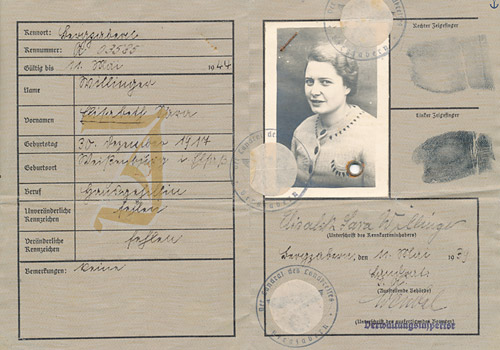 Kennort: Bergzabern
Kennummer: A: 03585
Gültig bis 11. Mai 1944
Name Willinger
Vornamen Elisabeth Sara
Geburtstag 30. Dezember 1917
Geburtsort Weißenburg i/Elsaß
Beruf Hausgehilfin
Unveränderliche Kennzeichen fehlen
Veränderliche Kennzeichen fehlen
Bemerkungen: keine
J
Rechter Zeigefinger
Linker Zeigefinger
Elisabeth Sara Willinger
(Unterschrift des Kennkarteninhabers)
Bergzabern, den 11. Mai 1939
Landrat
(Ausstellende Behörde)
(Unterschrift des ausfertigenden Beamten)
Verwaltungsinspektor
Der Landrat des Landkreises
Bergzabern